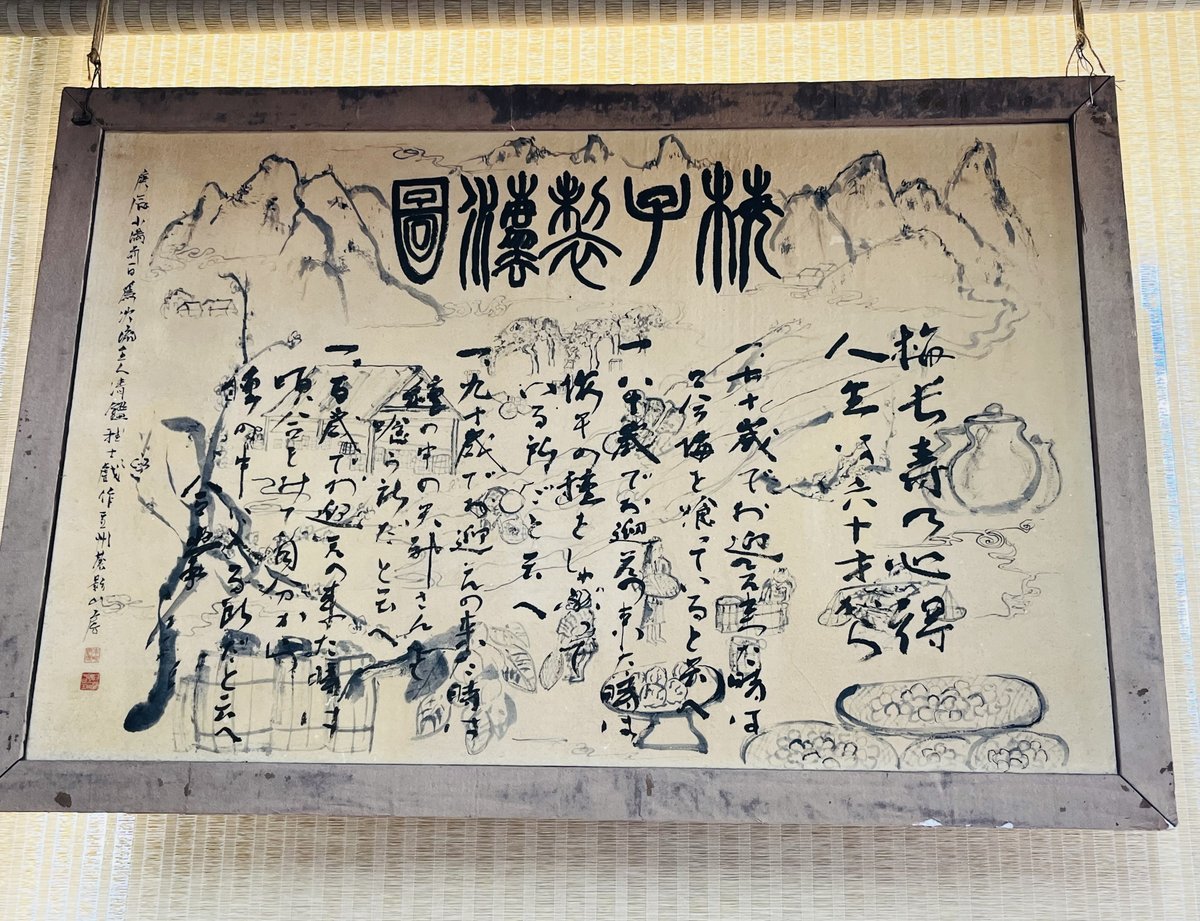 梅子製圖
梅長寿の心得
人生は六十才から
一、七十歳でお迎えの来た時は
只今梅を喰っていると云へ
一、八十歳でお迎えの来た時は
梅干の種をしゃぶって
いる所だと云へ
一、九十歳でお迎えの来た時は
種の中の天神さんを
喰ら所だと云へ
一、百歳でお迎えの来た時は
頃合を見て自分から
種の中へ入る所だと云へ
庚辰小満 日為 主人清鑑 士戯作 州 山房